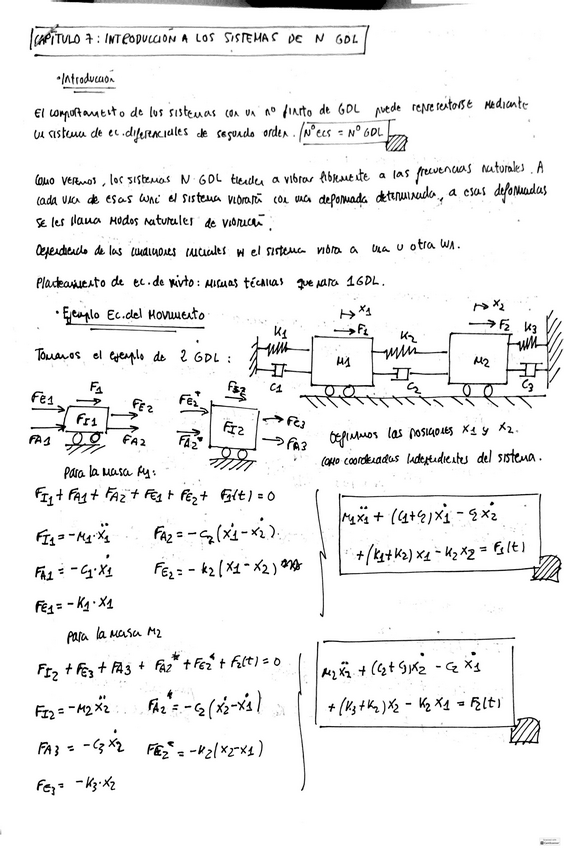 CAPÍTULO 7: INTRODUCCIÓN A LOS SISTEMAS DE N GDL
• Introducción
El comportamiento de los sistemas con un nº finito de GDL puede representarse mediante
un sistema de ec. diferenciales de segundo orden. (Nº ecs = Nº GDL)
Como veremos, los sistemas N GDL tienden a vibrar libremente a las frecuencias naturales. A
cada una de esas wni el sistema vibrará con una deformada determinada, a esas deformadas
se les llama modos naturales de vibración.
Dependiendo de las condiciones iniciales el sistema vibra a una u otra wn.
Planteamiento de ec. de mvto: mismas técnicas que para 1GDL.
• Ejemplo Ec. del Movimiento
Tomamos el ejemplo de 2 GDL:
x1 x2
F1 F2
K1 K2 K3
M1 M2
C1 C2 C3
FE1 F1 FE2
FA1 FI1 FA2
FE2* F2 FE3
FA2* FI2 FA3
Definimos las posiciones x1 y x2
como coordenadas independientes del sistema.
Para la masa M1:
FI1 + FA1 + FA2 + FE1 + FE2 + F1(t) = 0
FI1 = -M1·ẍ1 FA2 = -C2(ẋ1-ẋ2)
FA1 = -C1·ẋ1 FE2 = -K2(x1-x2)
FE1 = -K1·x1
M1ẍ1 + (C1+C2)ẋ1 - C2ẋ2
+(K1+K2)x1 - K2x2 = F1(t)
Para la masa M2
FI2 + FE3 + FA3 + FA2* + FE2* + F2(t) = 0
FI2 = -M2ẍ2 FA2* = -C2(ẋ2-ẋ1)
FA3 = -C3ẋ2 FE2* = -K2(x2-x1)
FE3 = -K3·x2
M2ẍ2 + (C2+C3)ẋ2 - C2ẋ1
+(K3+K2)x2 - K2x1 = F2(t)